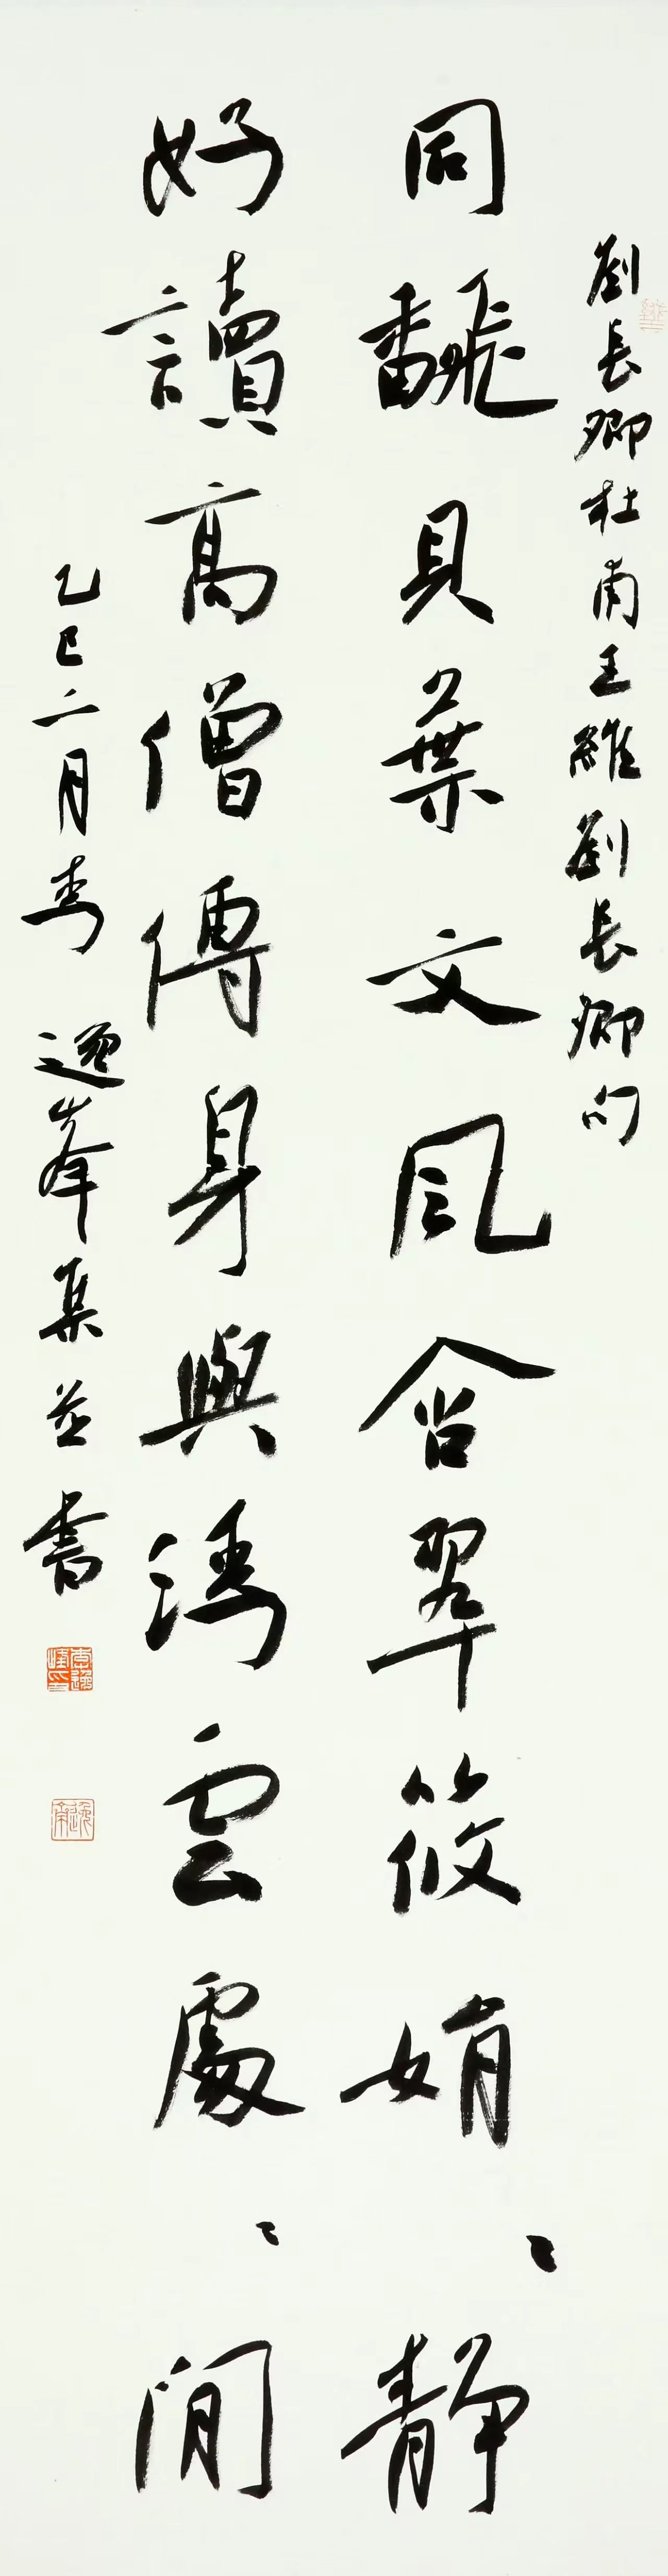 劉長卿杜甫王維劉長卿句
同飜貝葉文風含翠筱娟〻靜
好讀高僧傳身與浮雲處〻閒
乙巳二月 逸峯集並書
李逸峰印